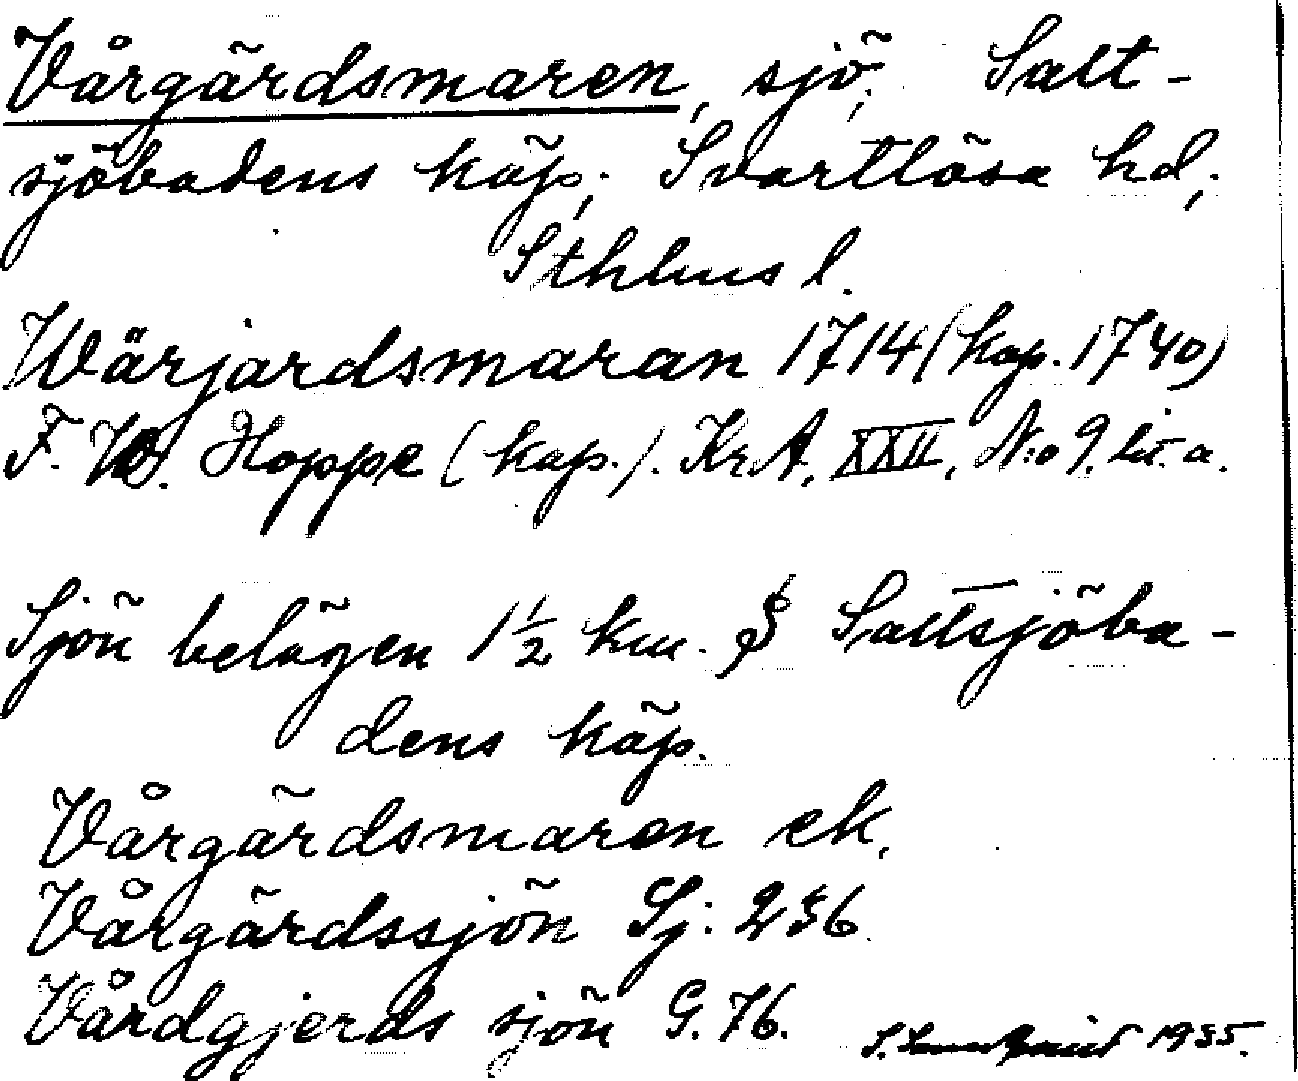 Vårgärdsmaren, sjö; Salt-
sjöbadens köp; Svartlösa hd;
Sthlms l.
Wärjardsmaran 1714 (kop. 1740)
F. W. Hoppe (kop.). Kr.A. XXII, N:o 9. lit. a.
Sjön belägen 1 1/2 km. S Saltsjöba-
dens köp.
Vårgärdsmaren ek.
Vårgärdssjön Sj: 236
Vårdgjerds sjön G. 76.
S. 1935.